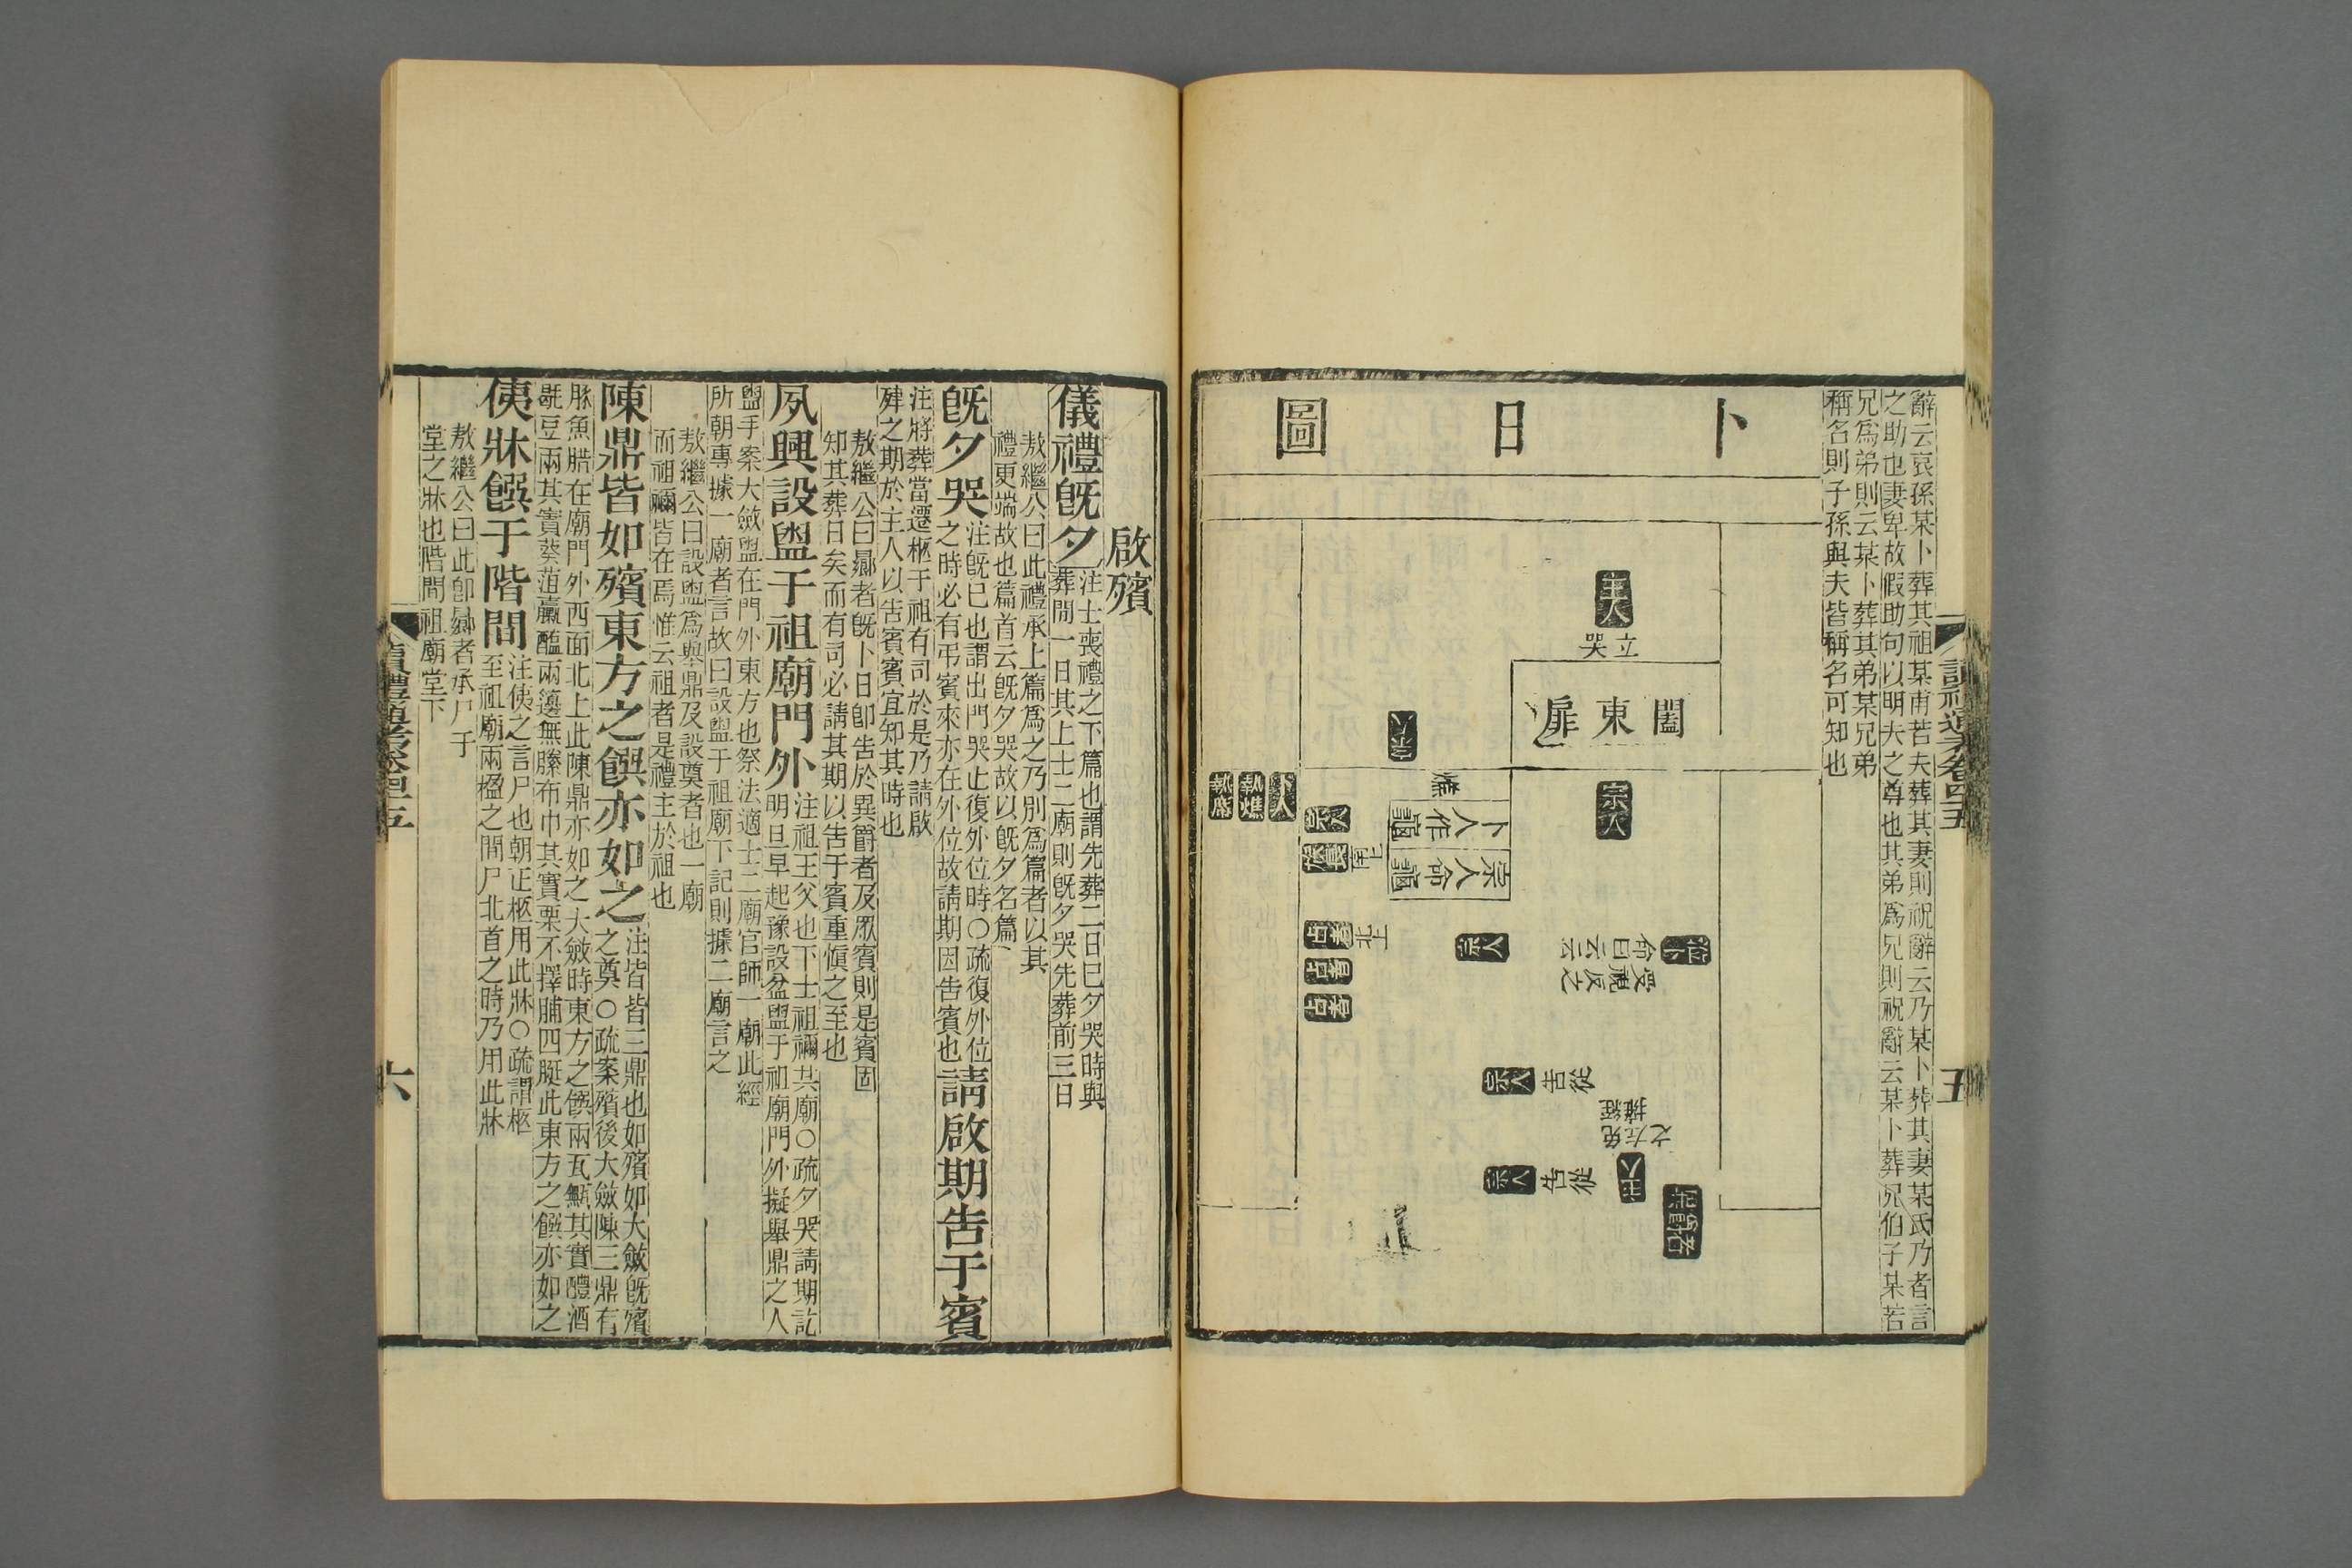 辭云哀孫某卜葬其祖某甫若夫葬其妻則祝辭云乃某卜葬其妻某氏乃者言
之助也妻卑故假助句以明夫之尊也其弟爲兄則祝辭云某卜葬兄伯子某若
兄爲弟則云某卜葬其弟某兄弟
稱名則子孫與夫皆稱名可知也
卜日圖
主人
立哭
闔東扉
宗人
卜人
執燋
執席
宗人
燋
卜人作龜
宗人命龜
族長
占者
占者
占者
宗人
涖卜
命曰云云
受視反之
宗人
告從
之左免
擁絰
宗人
告從
主人
五
啟殯
儀禮旣夕
注士喪禮之下篇也謂先葬二日已夕哭時與
葬間一日其上士二廟則旣夕哭先葬前三日
敖繼公曰此禮承上篇爲之乃別爲篇者以其
禮更端故也篇首云旣夕哭故以旣夕名篇
旣夕哭
注旣已也謂出門哭止復外位時○疏復外位
之時必有弔賓來亦在外位故請期因告賓也
請啟期告于賓
注將葬當遷柩于祖有司於是乃請啟
肂之期於主人以告賓賓宜知其時也
敖繼公曰曏者旣卜日卽告於異爵者及眾賓則是賓固
知其葬日矣而有司必請其期以告于賓重愼之至也
夙興設盥于祖廟門外
注祖王父也下士祖禰共廟○疏夕哭請期訖
明旦早起豫設盆盥于祖廟門外擬舉鼎之人
盥手案大斂盥在門外東方也祭法適士二廟官師一廟此經
所朝專據一廟者言故曰設盥于祖廟下記則據二廟言之
敖繼公曰設盥爲舉鼎及設奠者也一廟
而祖禰皆在焉惟云祖者是禮主於祖也
陳鼎皆如殯東方之饌亦如之
注皆皆三鼎也如殯如大斂旣殯
之奠○疏案殯後大斂陳三鼎有
豚魚腊在廟門外西面北上此陳鼎亦如之大斂時東方之饌兩瓦甒其實醴酒
毼豆兩其實葵菹蠃醢兩籩無縢布巾其實栗不擇脯四脡此東方之饌亦如之
侇牀饌于階間
注侇之言尸也朝正柩用此牀○疏謂柩
至祖廟兩楹之間尸北首之時乃用此牀
敖繼公曰此卽曏者承尸于
堂之牀也階間祖廟堂下
六